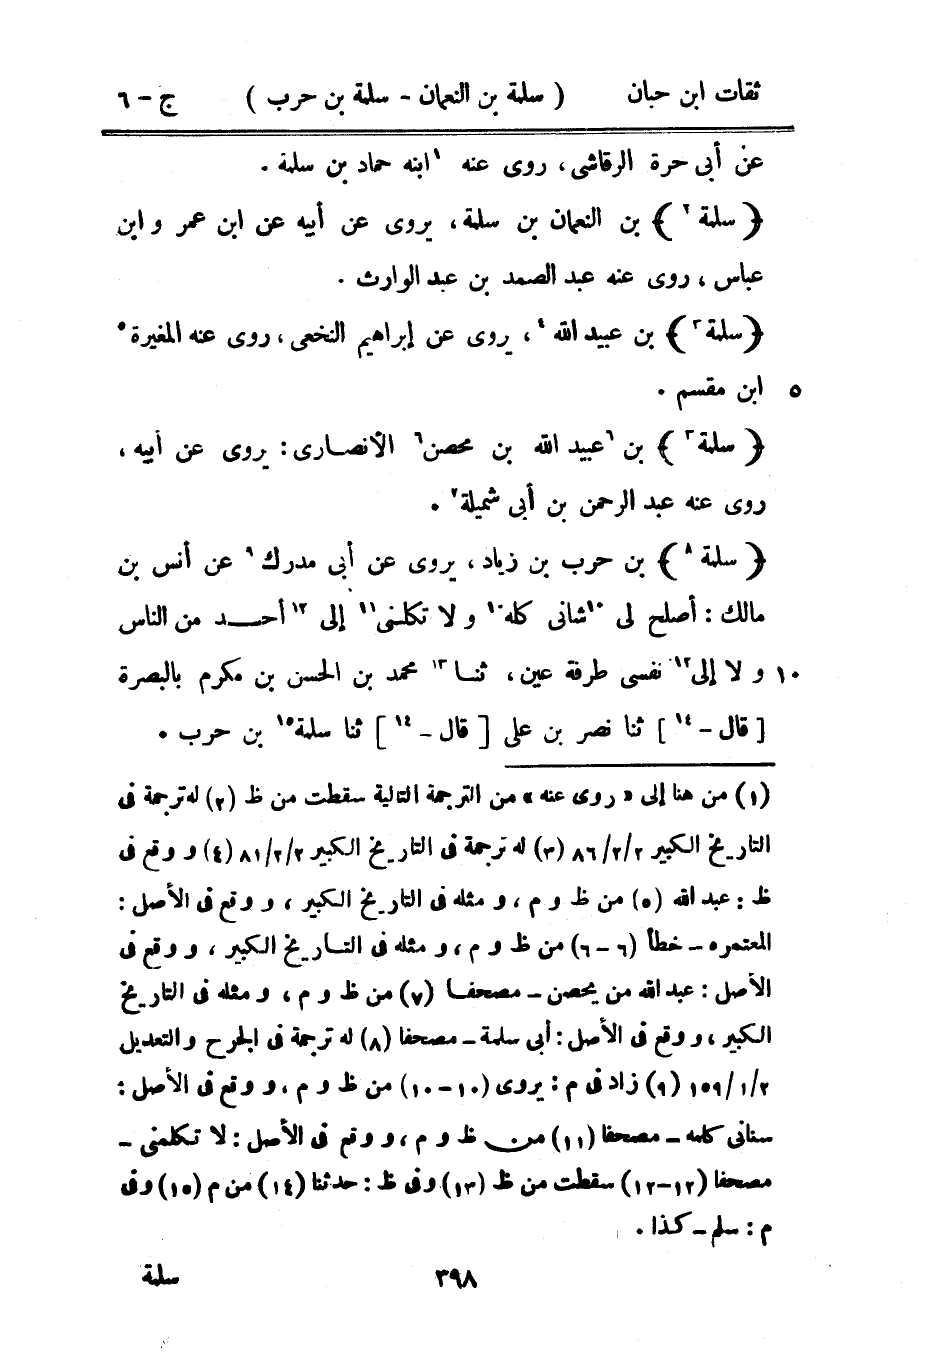 ثقات ابن حبان ( سلمة بن النعمان - سلمة بن حرب ) ج - ٦
عن أبى حرة الرقاشى، روى عنه ١ ابنه حماد بن سلمة .
﴿ سلمة ٢ ﴾ بن النعمان بن سلمة، يروى عن أبيه عن ابن عمر و ابن
عباس ، روى عنه عبد الصمد بن عبد الوارث .
﴿ سلمة ٣ ﴾ بن عبيد الله ٤ ، يروى عن إبراهيم النخعى، روى عنه المغيرة ٥
٥ ابن مقسم .
﴿ سلمة ٣ ﴾ بن ٦ عبيد الله بن محصن ٦ الأنصارى : يروى عن أبيه ،
روى عنه عبد الرحمن بن أبى شميلة ٧ .
﴿ سلمة ٨ ﴾ بن حرب بن زياد، يروى عن أبى مدرك ٩ عن أنس بن
مالك : أصلح لى ١٠ شانى كله ١٠ و لا تكلنى ١١ إلى ١٢ أحد من الناس
١٠ و لا إلى ١٢ نفسى طرفة عين، ثنا ١٣ محمد بن الحسن بن مكرم بالبصرة
[ قال - ١٤ ] ثنا نصر بن على [ قال - ١٤ ] ثنا سلمة ١٥ بن حرب .
(١) من هنا إلى « روى عنه » من الترجمة التالية سقطت من ظ (٢) له ترجمة فى
التاريخ الكبير ٢/٢/ ٨٦ (٣) له ترجمة فى التاريخ الكبير ٨١/٢/٢ (٤) و وقع فى
ظ : عبد الله (٥) من ظ و م ، و مثله فى التاريخ الكبير ، و وقع فى الأصل :
المعتمره - خطأ (٦ - ٦) من ظ و م ، و مثله فى التاريخ الكبير ، و وقع فى
الأصل : عبد الله من يحصن - مصحفا (٧) من ظ و م ، و مثله فى التاريخ
الكبير ، و وقع فى الأصل : أبى سلمة - مصحفا (٨) له ترجمة فى الجرح و التعديل
١٥٩/١/٢ (٩) زاد فى م : يروى (١٠ - ١٠) من ظ و م ، و وقع فى الأصل :
سنانى كلمه - مصحفا (١١) من ظ و م ، و وقع فى الأصل : لا تكلمنى -
مصحفا (١٢-١٢) سقطت من ظ (١٣) وفى ظ : حدثنا (١٤) من م (١٥) وفى
م : سلم - كذا .
٣٩٨ سلمة